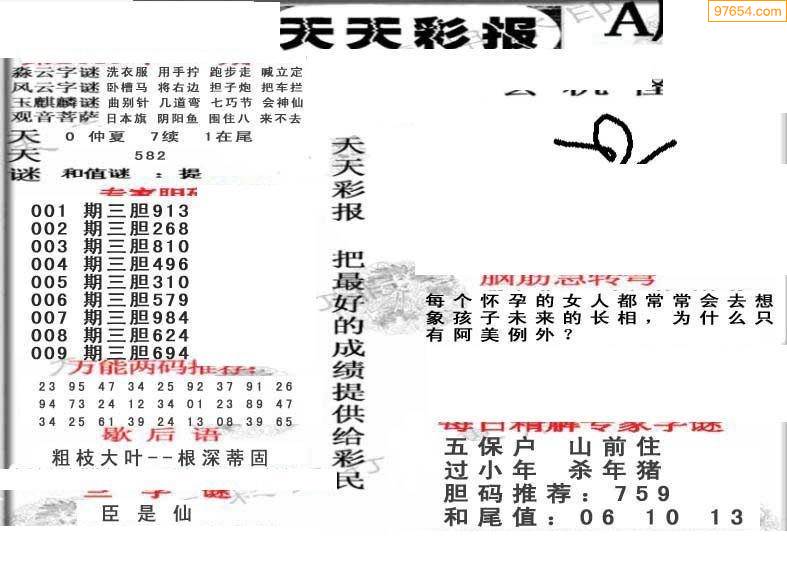 97654.com
天天彩报
淼云字谜 洗衣服 用手拧 跑步走 喊立定
风云字谜 卧槽马 将右边 担子炮 把车拦
玉麒麟谜 曲别针 几道弯 七巧节 会神仙
观音菩萨 日本旗 阴阳鱼 围住八 来不去
天 0 仲夏 7续 1在尾
天 582
谜 和值谜 ：提
001 期三胆913
002 期三胆268
003 期三胆810
004 期三胆496
005 期三胆310
006 期三胆579
007 期三胆984
008 期三胆624
009 期三胆694
万能两码推荐:
23 95 47 34 25 92 37 91 26
94 73 24 12 34 01 23 89 47
34 25 61 39 24 13 08 39 65
歇后语
粗枝大叶--根深蒂固
三字谜
臣是仙
天天彩报 把最好的成绩提供给彩民
脑筋急转弯
每个怀孕的女人都常常会去想
象孩子未来的长相，为什么只
有阿美例外？
每日精解专家字谜
五保户 山前住
过小年 杀年猪
胆码推荐：759
和尾值：06 10 13